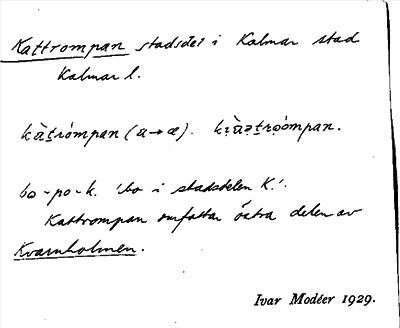 Kattrompan stadsdel i Kalmar stad
Kalmar l.
kàtrómpan (a→æ). kàtróompan.
bo-po-k. 'bo i stadsdelen K.'.
Kattrompan omfattar östra delen av
Kvarnholmen.
Ivar Modéer 1929.